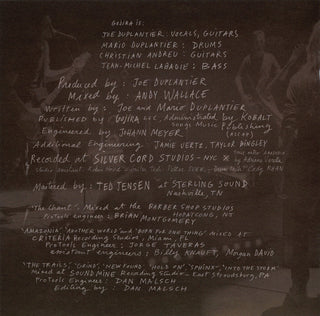 GOJIRA is:
JOE DUPLANTIER: VOCALS, GUITARS
MARIO DUPLANTIER: DRUMS
CHRISTIAN ANDREU: GUITARS
JEAN-MICHEL LABADIE: BASS
Produced by: JOE DUPLANTIER
Mixed by: ANDY WALLACE
Written by: Joe and Mario DUPLANTIER
Published by GOJIRA LLC Administrated by KOBALT
Songs Music Publishing
(ASCAP)
Engineered by JOHANN MEYER
Additional Engineering JAMIE UERTZ, TAYLOR BINGLEY
Recorded at SILVER CORD STUDIOS - NYC
by Adrien
Studio assistant
Mastered by: TED JENSEN at STERLING SOUND
Nashville, TN
"The Chant": Mixed at the BARBER SHOP STUDIOS
HOPATCONG, NJ
ProTools engineer: BRIAN MONTGOMERY
"AMAZONIA" "ANOTHER WORLD" and "BORN FOR ONE THING" MIXED AT
CRITERIA Recording Studios, Miami, FL
ProTools Engineer: JORGE TAVERAS
assistant engineers: Billy KNAUFT, Morgan DAVID
"THE TRAILS", "GRIND", "NEW FOUND", "HOLD ON", "SPHINX", "INTO THE STORM"
Mixed at SOUNDMINE Recording Studio - East Stroudsburg, PA
ProTools Engineer: DAN MALSCH
Editing by: DAN MALSCH